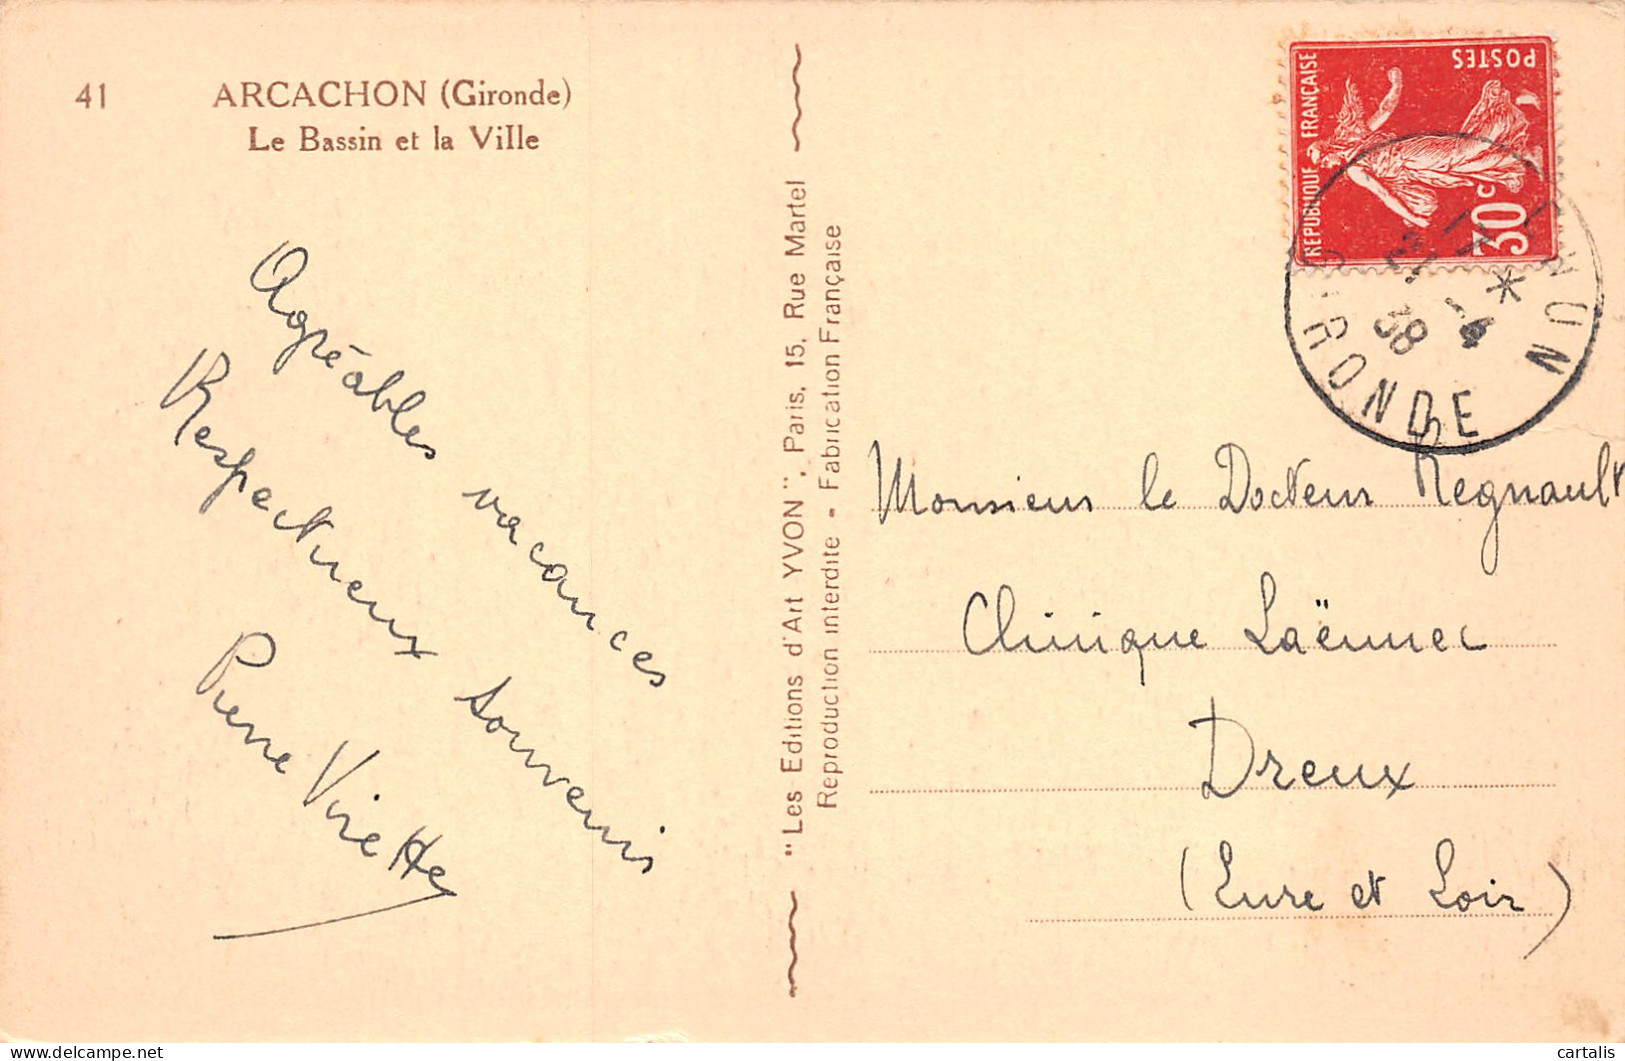 41 ARCACHON (Gironde)
Le Bassin et la Ville
Agréables vacances
Respectueux souvenirs
Pierre Virette
"Les Editions d'Art YVON", Paris, 15, Rue Martel
Reproduction interdite - Fabrication Française
REPUBLIQUE FRANÇAISE
POSTES
30c
21 -4
38
GIRONDE
Monsieur le Docteur Regnault
Clinique Laënnec
Dreux
(Eure et Loir)
cartalis